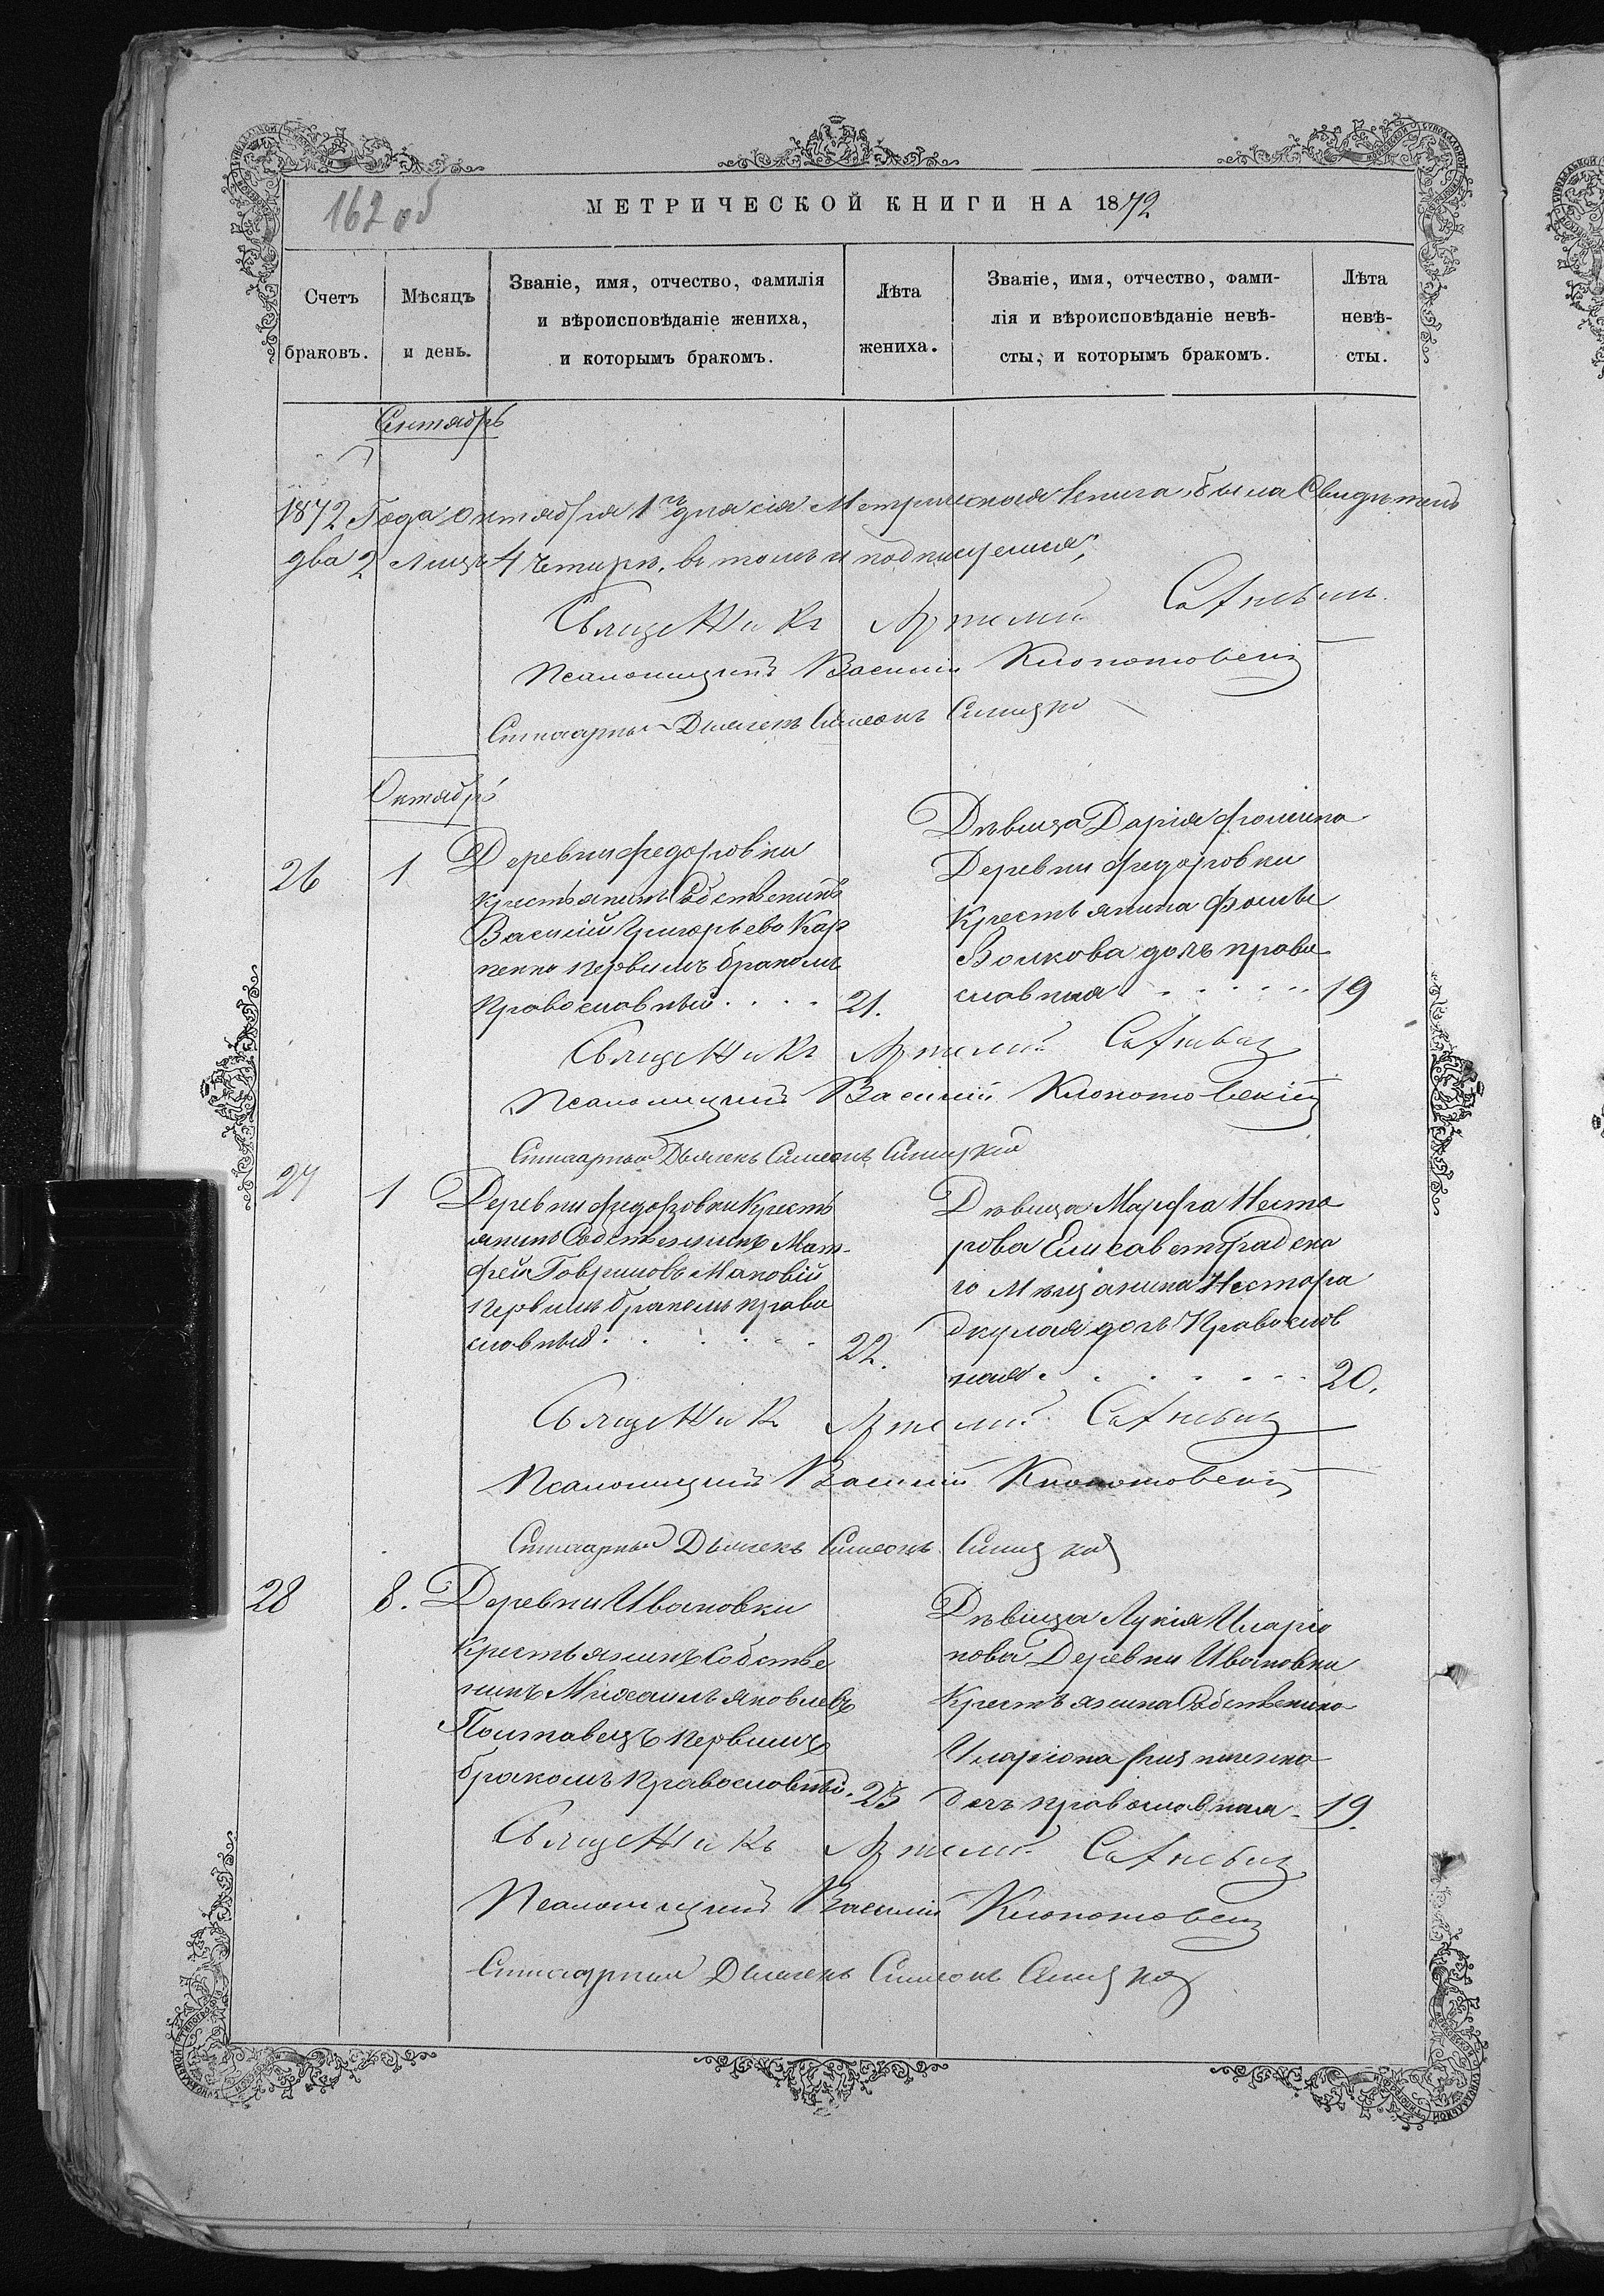 162 об
МЕТРИЧЕСКОЙ КНИГИ НА 1872
Счетъ браковъ.
Мѣсяцъ и день.
Званіе, имя, отчество, фамилія
и вѣроисповѣданіе жениха,
и которымъ бракомъ.
Лѣта жениха.
Званіе, имя, отчество, фами-
лія и вѣроисповѣданіе невѣ-
сты, и которымъ бракомъ.
Лѣта невѣ-
сты.
Сентябрь
1872 Года Октября 1го дня сія Метрическая книга была
два 2 Лицъ 4 четыре, въ томъ и подпишемся;
Священикъ Артемій
Василій Клопотовскій
Дьячекъ Симеонъ
Октябрь
26
1
Деревни Федоровки
крестьянинъ Собственикъ
Василій Григорьевъ Кар
пенко первимъ бракомъ
Православный . . . .
21.
Дѣвица Дарія Фомина
Деревни Федоровки
Крестьянина Фомы
Волкова дочь право
славная . . . . . .
19
Священикъ Артемій
Василій Клопотовскій
Дьячекъ Симеонъ
27
1
Деревни Федоровки Кресть
янинъ Собственникъ Мат-
фей Гавриловъ Маковій
первимъ бракомъ право
славный . . . . . .
22.
Дѣвица Марфа Несто
рова Елисаветградска
го Мѣщанина Нестора
дочь Православ
ная . . . . . .
20.
Священикъ Артемій
Василій Клопотовскій
Дьячекъ Симеонъ
28
8.
Деревни Ивановки
Крестьянинъ Собстве
никъ Михаилъ Яковлевъ
Полтавецъ первимъ
бракомъ Православный.
25
Дѣвица Лукія Иларіо
нова Деревни Ивановки
Крестьянина Собственика
Иларіона
дочь православная -
19.
Священикъ Артемій
Василій Клопотовскій
Дьячекъ Симеонъ